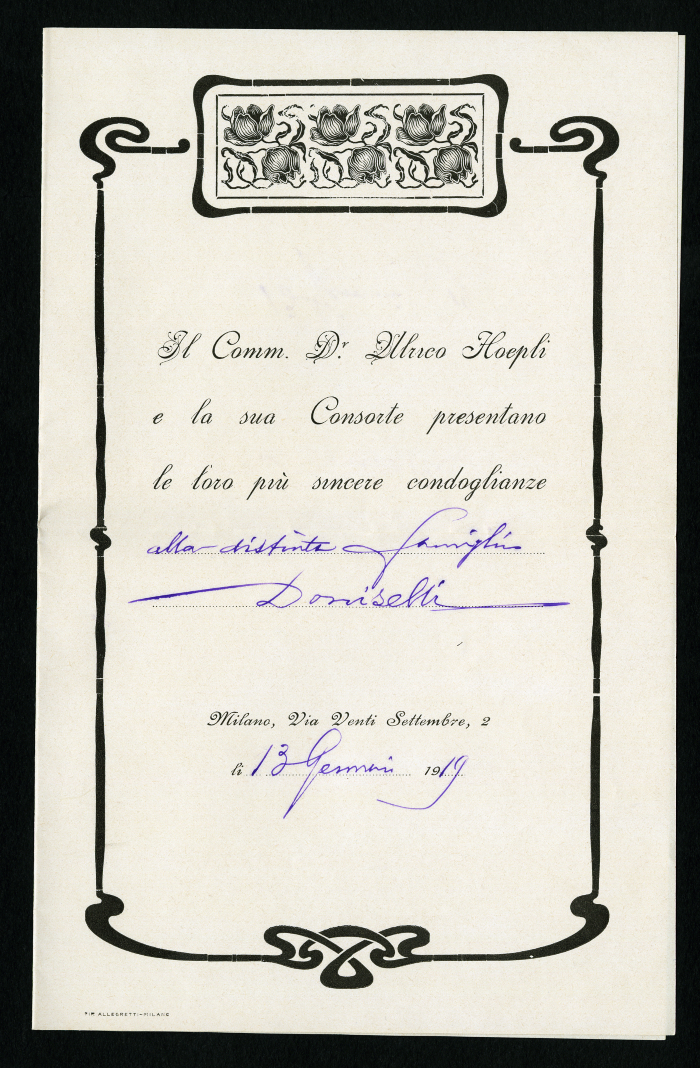 Il Comm. Dr. Ulrico Hoepli
e la sua Consorte presentano
le loro più sincere condoglianze
alla distinta Famiglia
Doniselli
Milano, Via Venti Settembre, 2
li 13 Gennaio 1919
TIP. ALLEGRETTI-MILANO